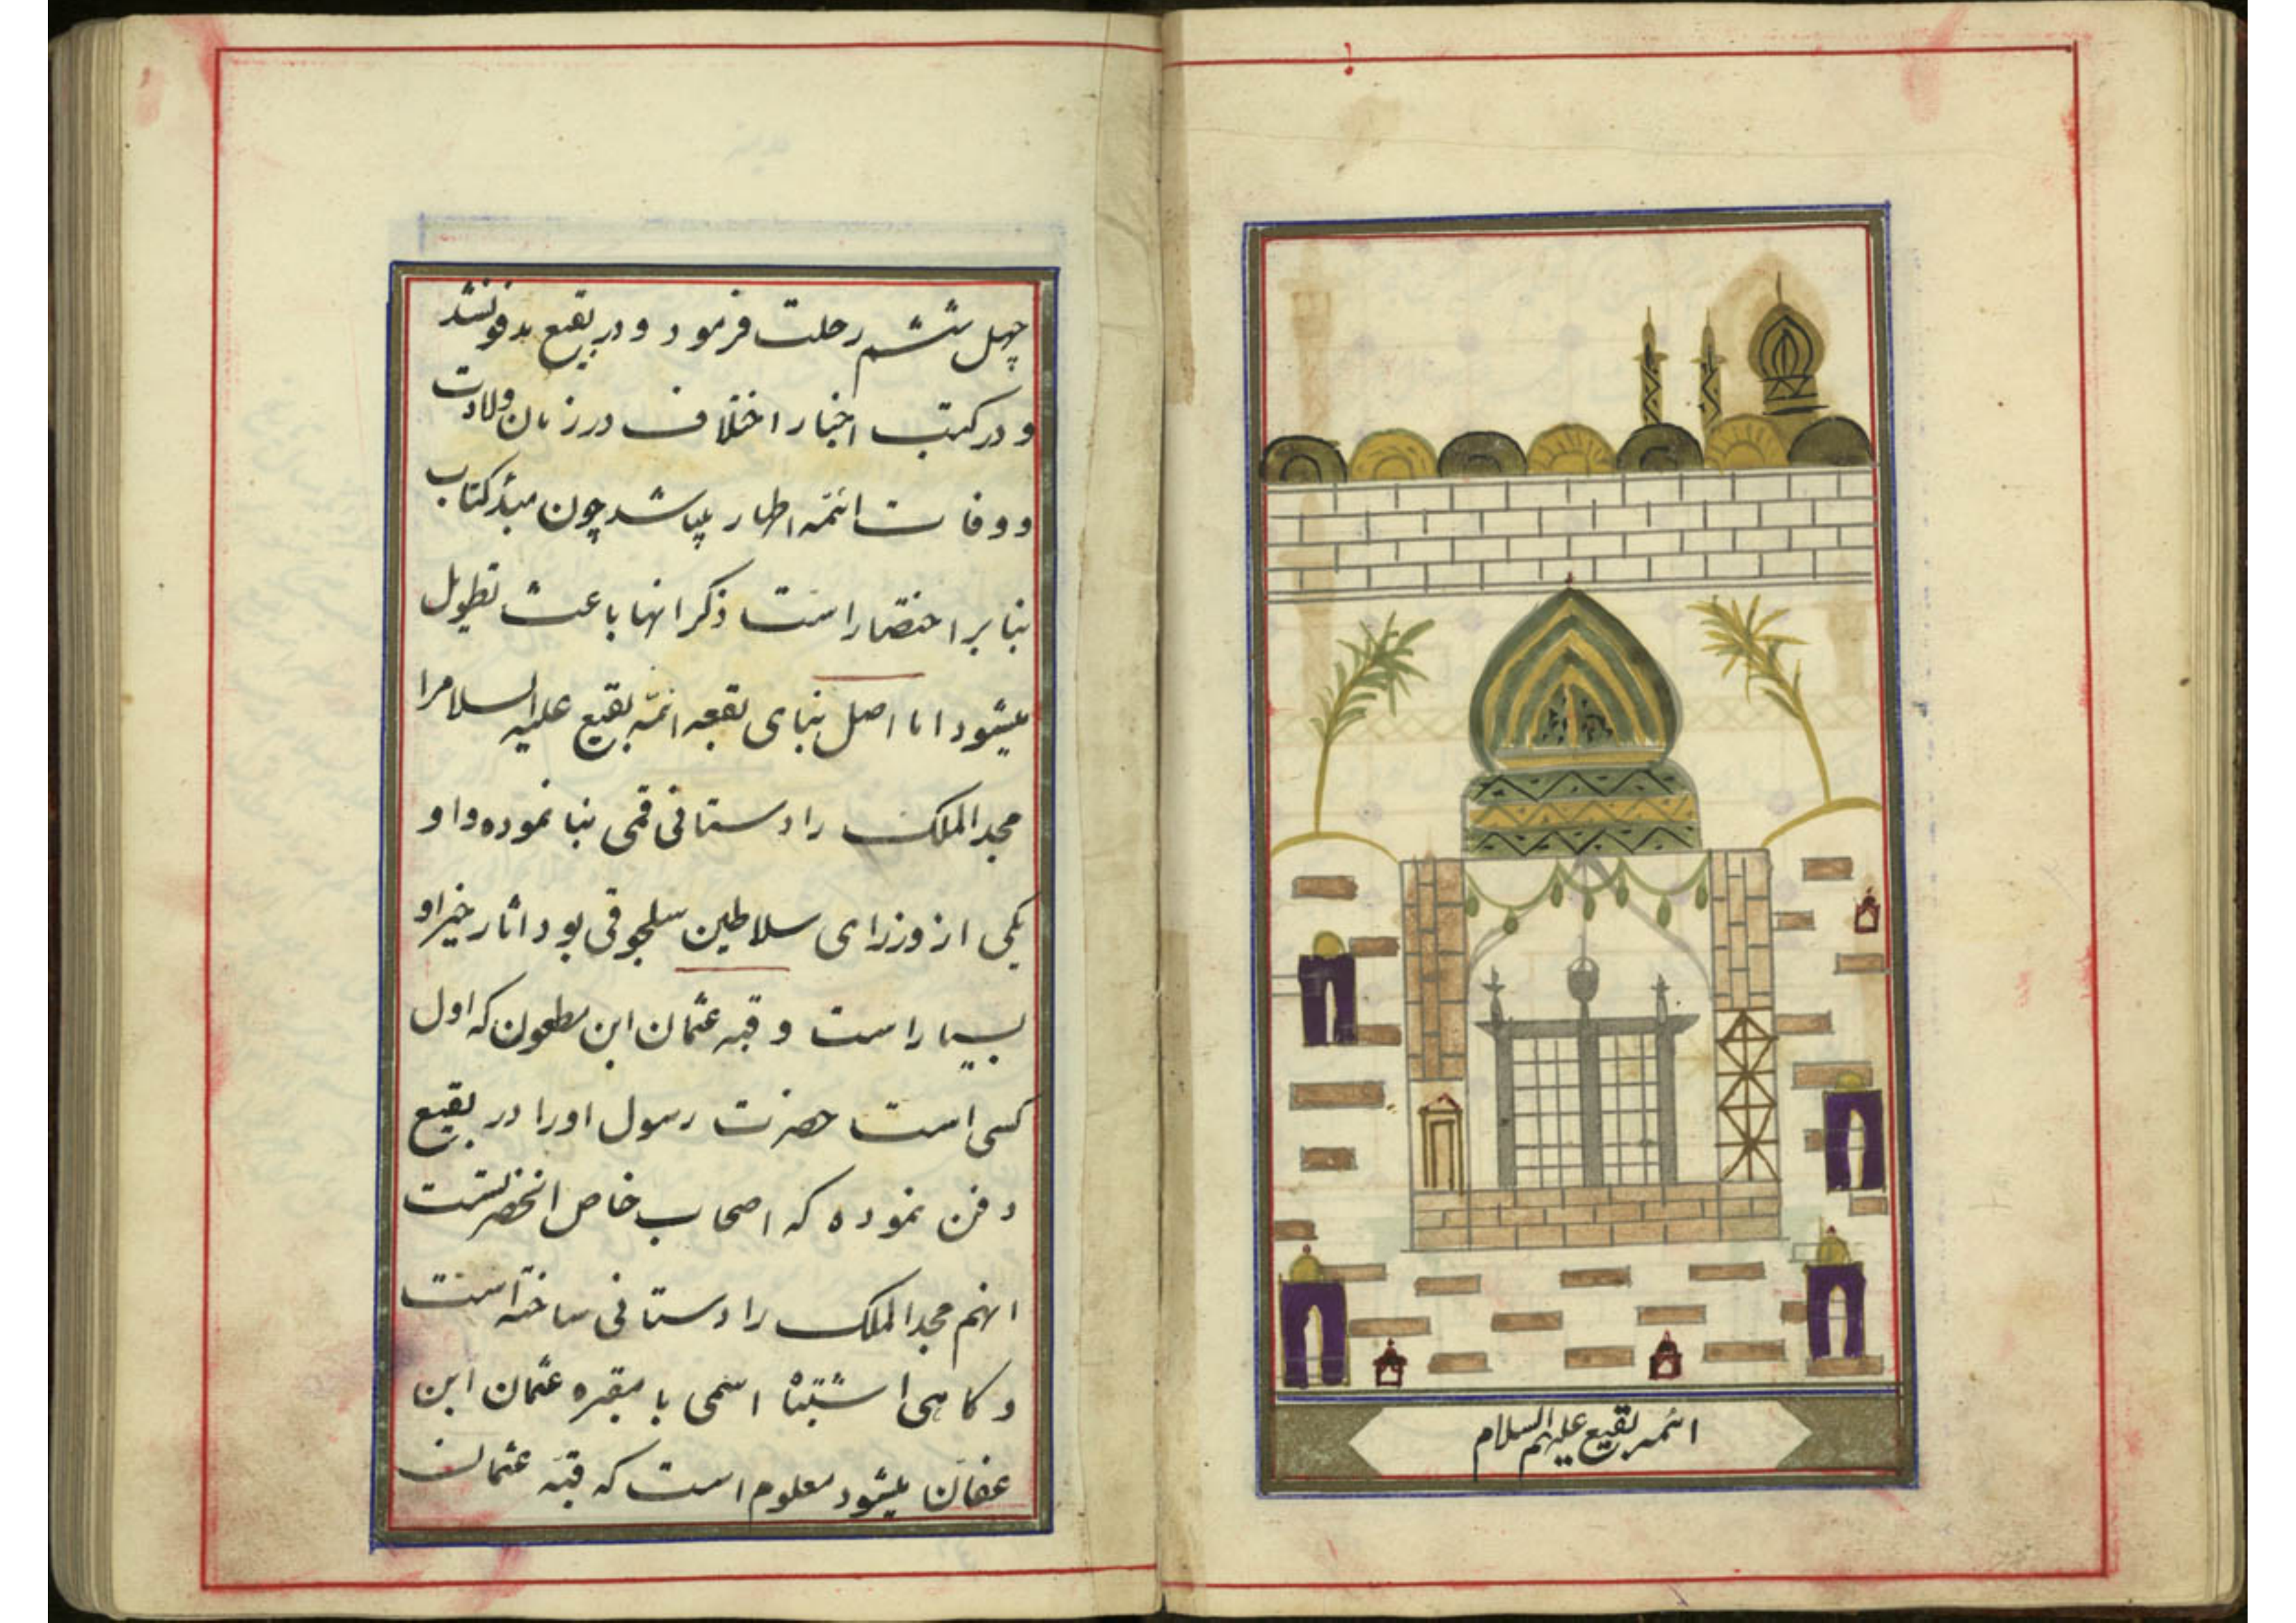 ائمه بقیع علیهم السلام
چهل ششم رحلت فرمود و در بقیع مدفون شد
و در کتب اخبار اختلاف در زمان ولادت
و وفات ائمه اطهار میباشد چون مبنٰی کتاب
بنا بر اختصار است ذکر انها باعث تطویل
میشود اما اصل بنای بقعه ائمّه بقیع علیه السلام را
مجد الملک رادستانی قمی بنا نموده و او
یکی از وزرای سلاطین سلجوقی بود اثار خیر او
بسیار است و قبه عثمان ابن مطعون که اول
کسی است حضرت رسول او را در بقیع
دفن نموده که اصحاب خاص انحضرتست
انهم مجد الملک رادستانی ساخته است
و کاهی اشتباه اسمی با مقبره عثمان ابن
عفان میشود معلوم است که قبّه عثمان